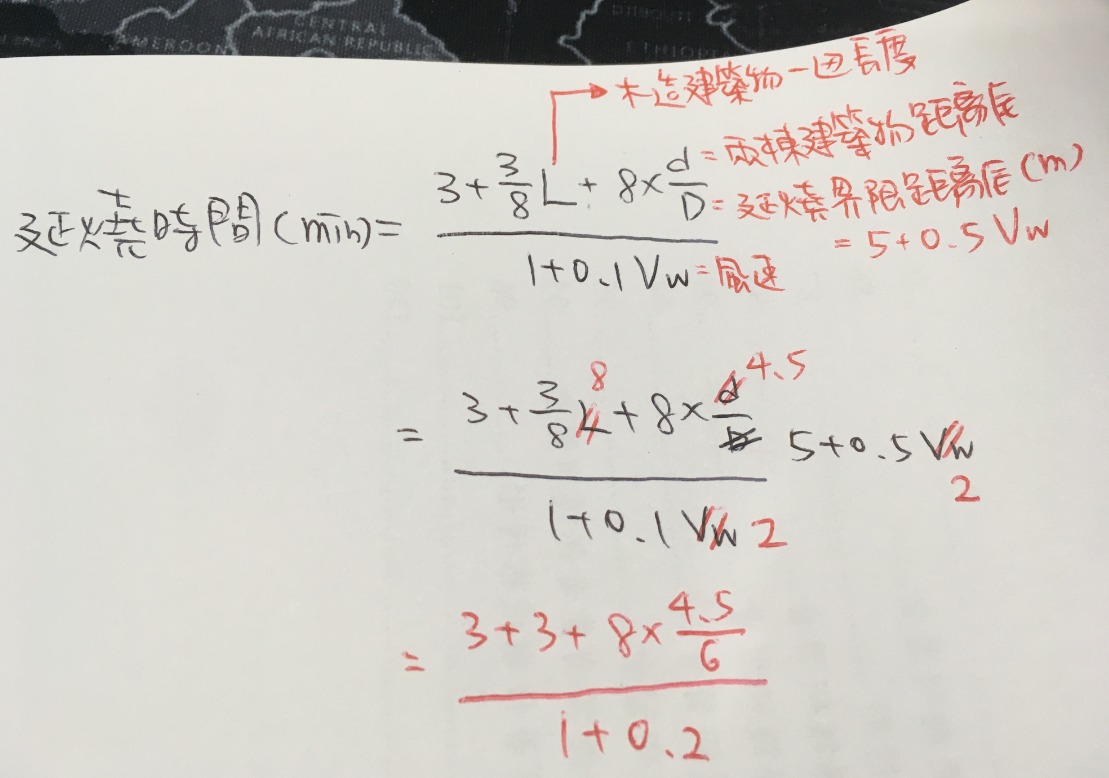 CAMEROON
CENTRAL
AFRICAN REPUBLIC
DJIBOUTI
ETHIOPIA
→木造建築物一边長度
延燒時間(min)= (3+3/8L+8×d/D)/(1+0.1Vw)
d=兩棟建築物距離
D=延燒界限距離(m)
=5+0.5Vw
Vw=風速
= (3+3/8L+8×d/D)/(1+0.1Vw)
8
4.5
5+0.5Vw
2
2
= (3+3+8×4.5/6)/(1+0.2)